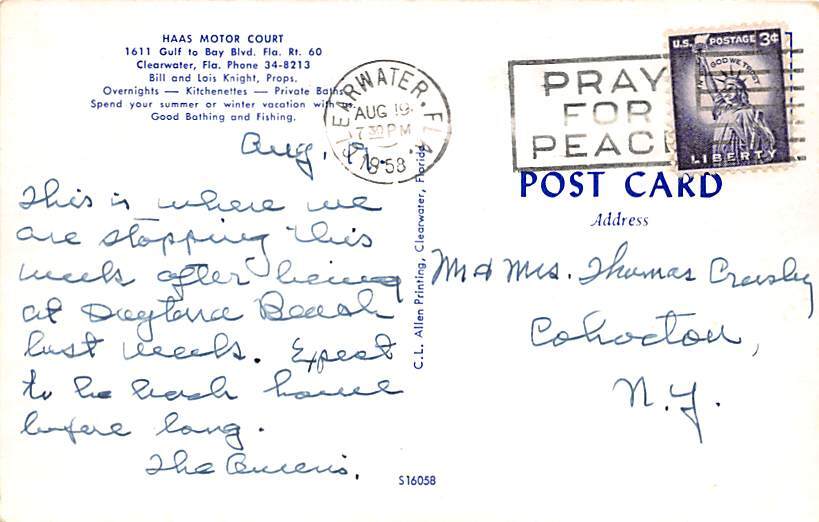 HAAS MOTOR COURT
1611 Gulf to Bay Blvd. Fla. Rt. 60
Clearwater, Fla. Phone 34-8213
Bill and Lois Knight, Props.
Overnights — Kitchenettes — Private Baths
Spend your summer or winter vacation with us
Good Bathing and Fishing.
CLEARWATER, FLA.
AUG 19
7 30 PM
1958
PRAY
FOR
PEACE
U.S. POSTAGE 3¢
IN GOD WE TRUST
LIBERTY
Aug.
This is where we
are stopping this
week after being
at Daytona Beach
last week. Expect
to be back home
before long.
The
C. L. Allen Printing, Clearwater, Florida
POST CARD
Address
Mr & Mrs. Thomas Crosby
Cohocton,
N.Y.
S16058